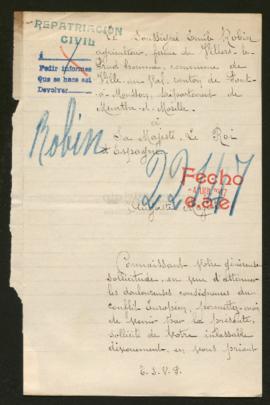 REPATRIACION
CIVIL
Pedir informes
Que se hace así
Devolver
Le Soussigné Emile Robin
agriculteur, ferme de Villers-le-
Prud'homme, commune de
Ville-au-Val, canton de Pont-
à-Mousson, département de
Meurthe-et-Moselle
à
Sa Majesté Le Roi
d'Espagne
Robin
Fecho
Connaissant votre généreuse
sollicitude, en vue d'atténuer
les douloureuses conséquences du
conflit Européen, permettez-moi
de venir par la présente,
solliciter de Votre inlassable
dévouement, en vous priant
T. S. V. P.